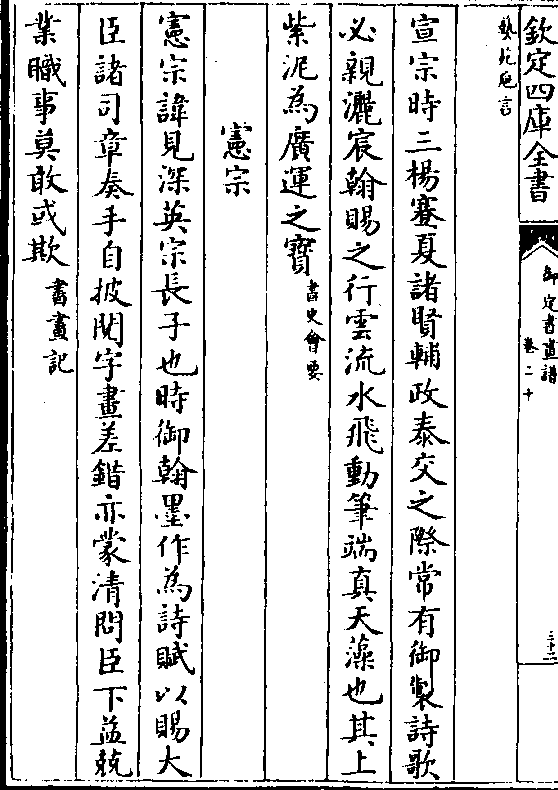 欽定四庫全書
御定書畫譜
卷二十
三十二
藝苑巵言
宣宗時三楊蹇夏諸賢輔政泰交之際常有御製詩歌
必親灑宸翰賜之行雲流水飛動筆端真天藻也其上
紫泥為廣運之寶書史會要
憲宗
憲宗諱見深英宗長子也時御翰墨作為詩賦以賜大
臣諸司章奏手自披閱字畫差錯亦蒙清問臣下益兢
業職事莫敢或欺書畫記